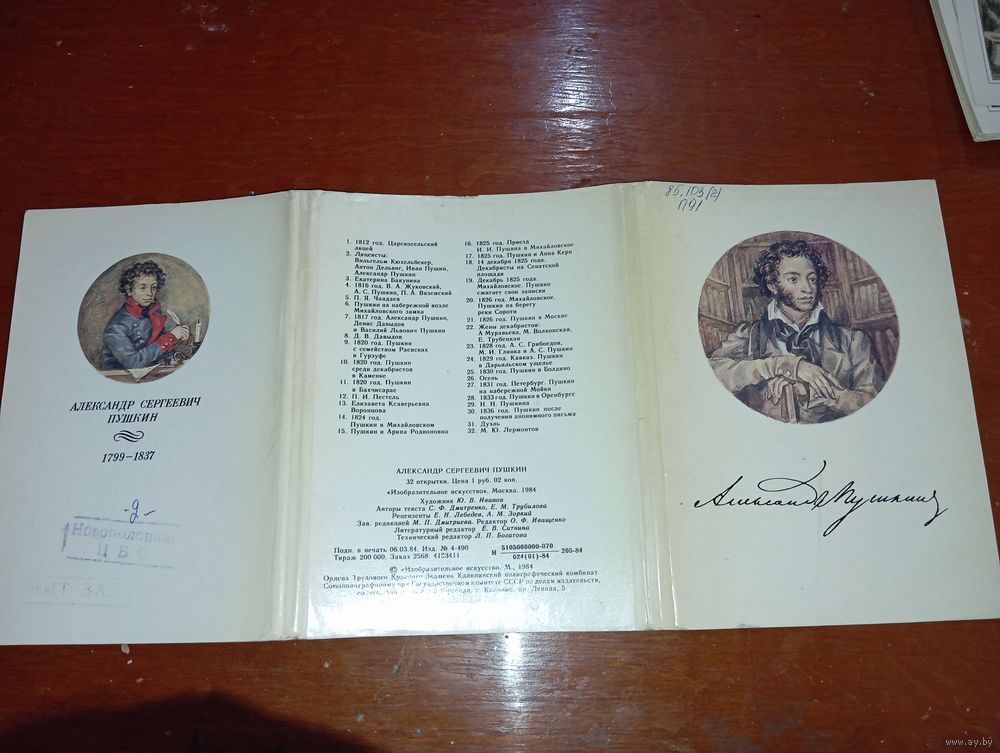 АЛЕКСАНДР СЕРГЕЕВИЧ
ПУШКИН
1799–1837
-2-
Новополоцкая
ЦБС
ЧИТ ЗАЛ
1. 1812 год. Царскосельский
лицей
2. Лицеисты:
Вильгельм Кюхельбекер,
Антон Дельвиг, Иван Пущин,
Александр Пушкин
3. Екатерина Бакунина
4. 1816 год. В. А. Жуковский,
А. С. Пушкин, П. А. Вяземский
5. П. Я. Чаадаев
6. Пушкин на набережной возле
Михайловского замка
7. 1817 год. Александр Пушкин,
Денис Давыдов
и Василий Львович Пушкин
8. Д. В. Давыдов
9. 1820 год. Пушкин
с семейством Раевских
в Гурзуфе
10. 1820 год. Пушкин
среди декабристов
в Каменке
11. 1820 год. Пушкин
в Бахчисарае
12. П. И. Пестель
13. Елизавета Ксаверьевна
Воронцова
14. 1824 год.
Пушкин в Михайловском
15. Пушкин и Арина Родионовна
16. 1825 год. Приезд
И. И. Пущина в Михайловское
17. 1825 год. Пушкин и Анна Керн
18. 14 декабря 1825 года.
Декабристы на Сенатской
площади
19. Декабрь 1825 года.
Михайловское. Пушкин
сжигает свои записки
20. 1826 год. Михайловское.
Пушкин на берегу
реки Сороти
21. 1826 год. Пушкин в Москве
22. Жены декабристов:
А Муравьева, М. Волконская,
Е. Трубецкая
23. 1828 год. А. С. Грибоедов,
М. И. Глинка и А. С. Пушкин
24. 1829 год. Кавказ. Пушкин
в Дарьяльском ущелье
25. 1830 год. Пушкин в Болдино
26. Осень
27. 1831 год. Петербург. Пушкин
на набережной Мойки
28. 1833 год. Пушкин в Оренбурге
29. Н. Н. Пушкина
30. 1836 год. Пушкин после
получения анонимного письма
31. Дуэль
32. М. Ю. Лермонтов
АЛЕКСАНДР СЕРГЕЕВИЧ ПУШКИН
32 открытки. Цена 1 руб. 02 коп.
«Изобразительное искусство». Москва. 1984
Художник Ю. В Иванов
Авторы текста С. Ф. Дмитренко, Е. М. Трубилова
Рецензенты Е. Н. Лебедев, А. М. Зоркий
Зав. редакцией М. П. Дмитриева. Редактор О. Ф. Иващенко
Литературный редактор Е. В. Ситнина
Технический редактор Л. П. Богатова
Подп. в печать 06.03.84. Изд. № 4-490
Тираж 200 000. Заказ 2568. 4123411
И 5105060000-070 205-84
024(01)-84
© «Изобразительное искусство. М., 1984
Ордена Трудового Красного Знамени Калининский полиграфический комбинат
Союзполиграфпрома при Государственном комитете СССР по делам издательств,
торговли, г. Калинин, пр. Ленина, 5
85.103(2)
П91
Александр Пушкин
www.ay.by